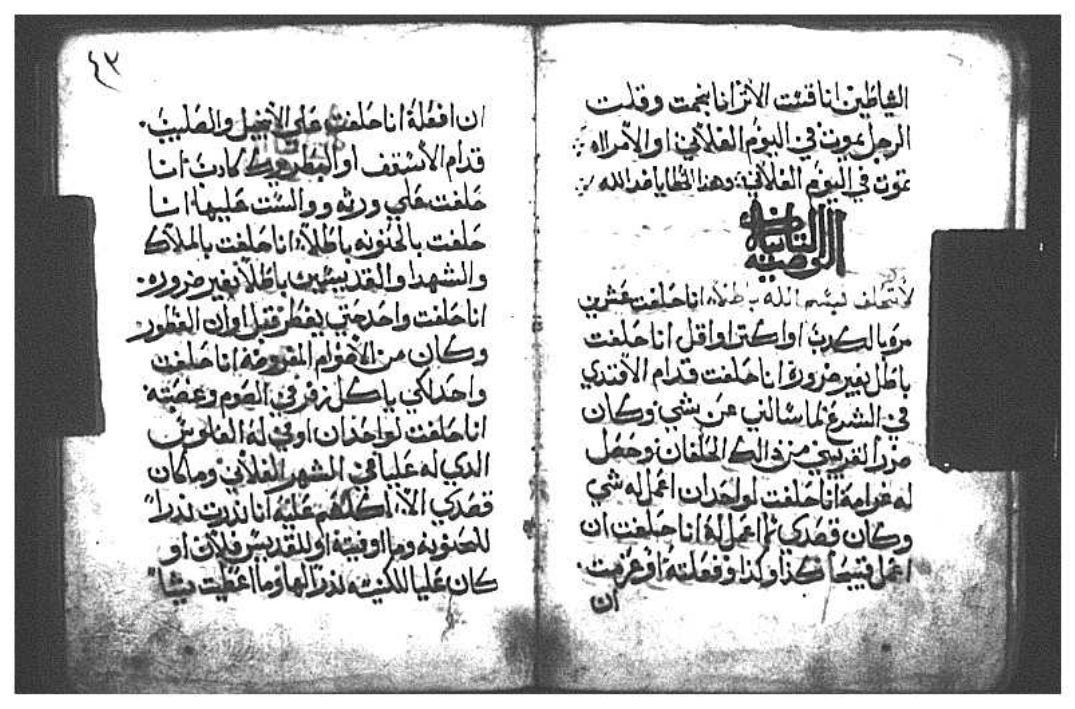 الشياطين انا قست الاتر انا نجمت وقلت
الرجل يموت في اليوم الفلاني او الامراه
تموت في اليوم الفلانيه وهذا الخطايا ضد الله
الوصيه الثانيه
لا تحلف بسم الله باطلاً انا حلفت عشرين
مره بالكدب او اكتر او اقل انا حلفت
باطل بغير ضرورة انا حلفت قدام الافندي
في الشرع لما سالني عن شي وكان
ضرر القريبي من ذالك الحلفان وحصل
له غرامة انا حلفت لواحد ان اعمل له شي
وكان قصدي لم اعمل له انا حلفت ان
اعمل قبيحاً كذا وكذا وفعلته او عزمت
ان
٤٣
ان افعلة انا حلفت علي الانجيل والصليب
قدام الاسقف او البطريرك كادب انا
حلفت علي ورثه ووالست عليها انا
حلفت بالحنونه باطلاً انا حلفت بالملاك
والشهدا والقديسين باطلاً بغير ضروره
انا حلفت واحد حتي يفطر قبل اوان الفطور
وكان من الاصوام المفروضه انا حلفت
واحد لكي ياكل زفر في الصوم وغصبته
انا حلفت لواحد ان اوفي له الفلوس
الدي له عليا في الشهر الفلاني وما كان
قصدي الا اكدهم عليه انا ندرت ندراً
للحنونه وما اوفيته او للقديس فلان او
كان عليا للكنيسه ندر الها وما اعطيت شياً